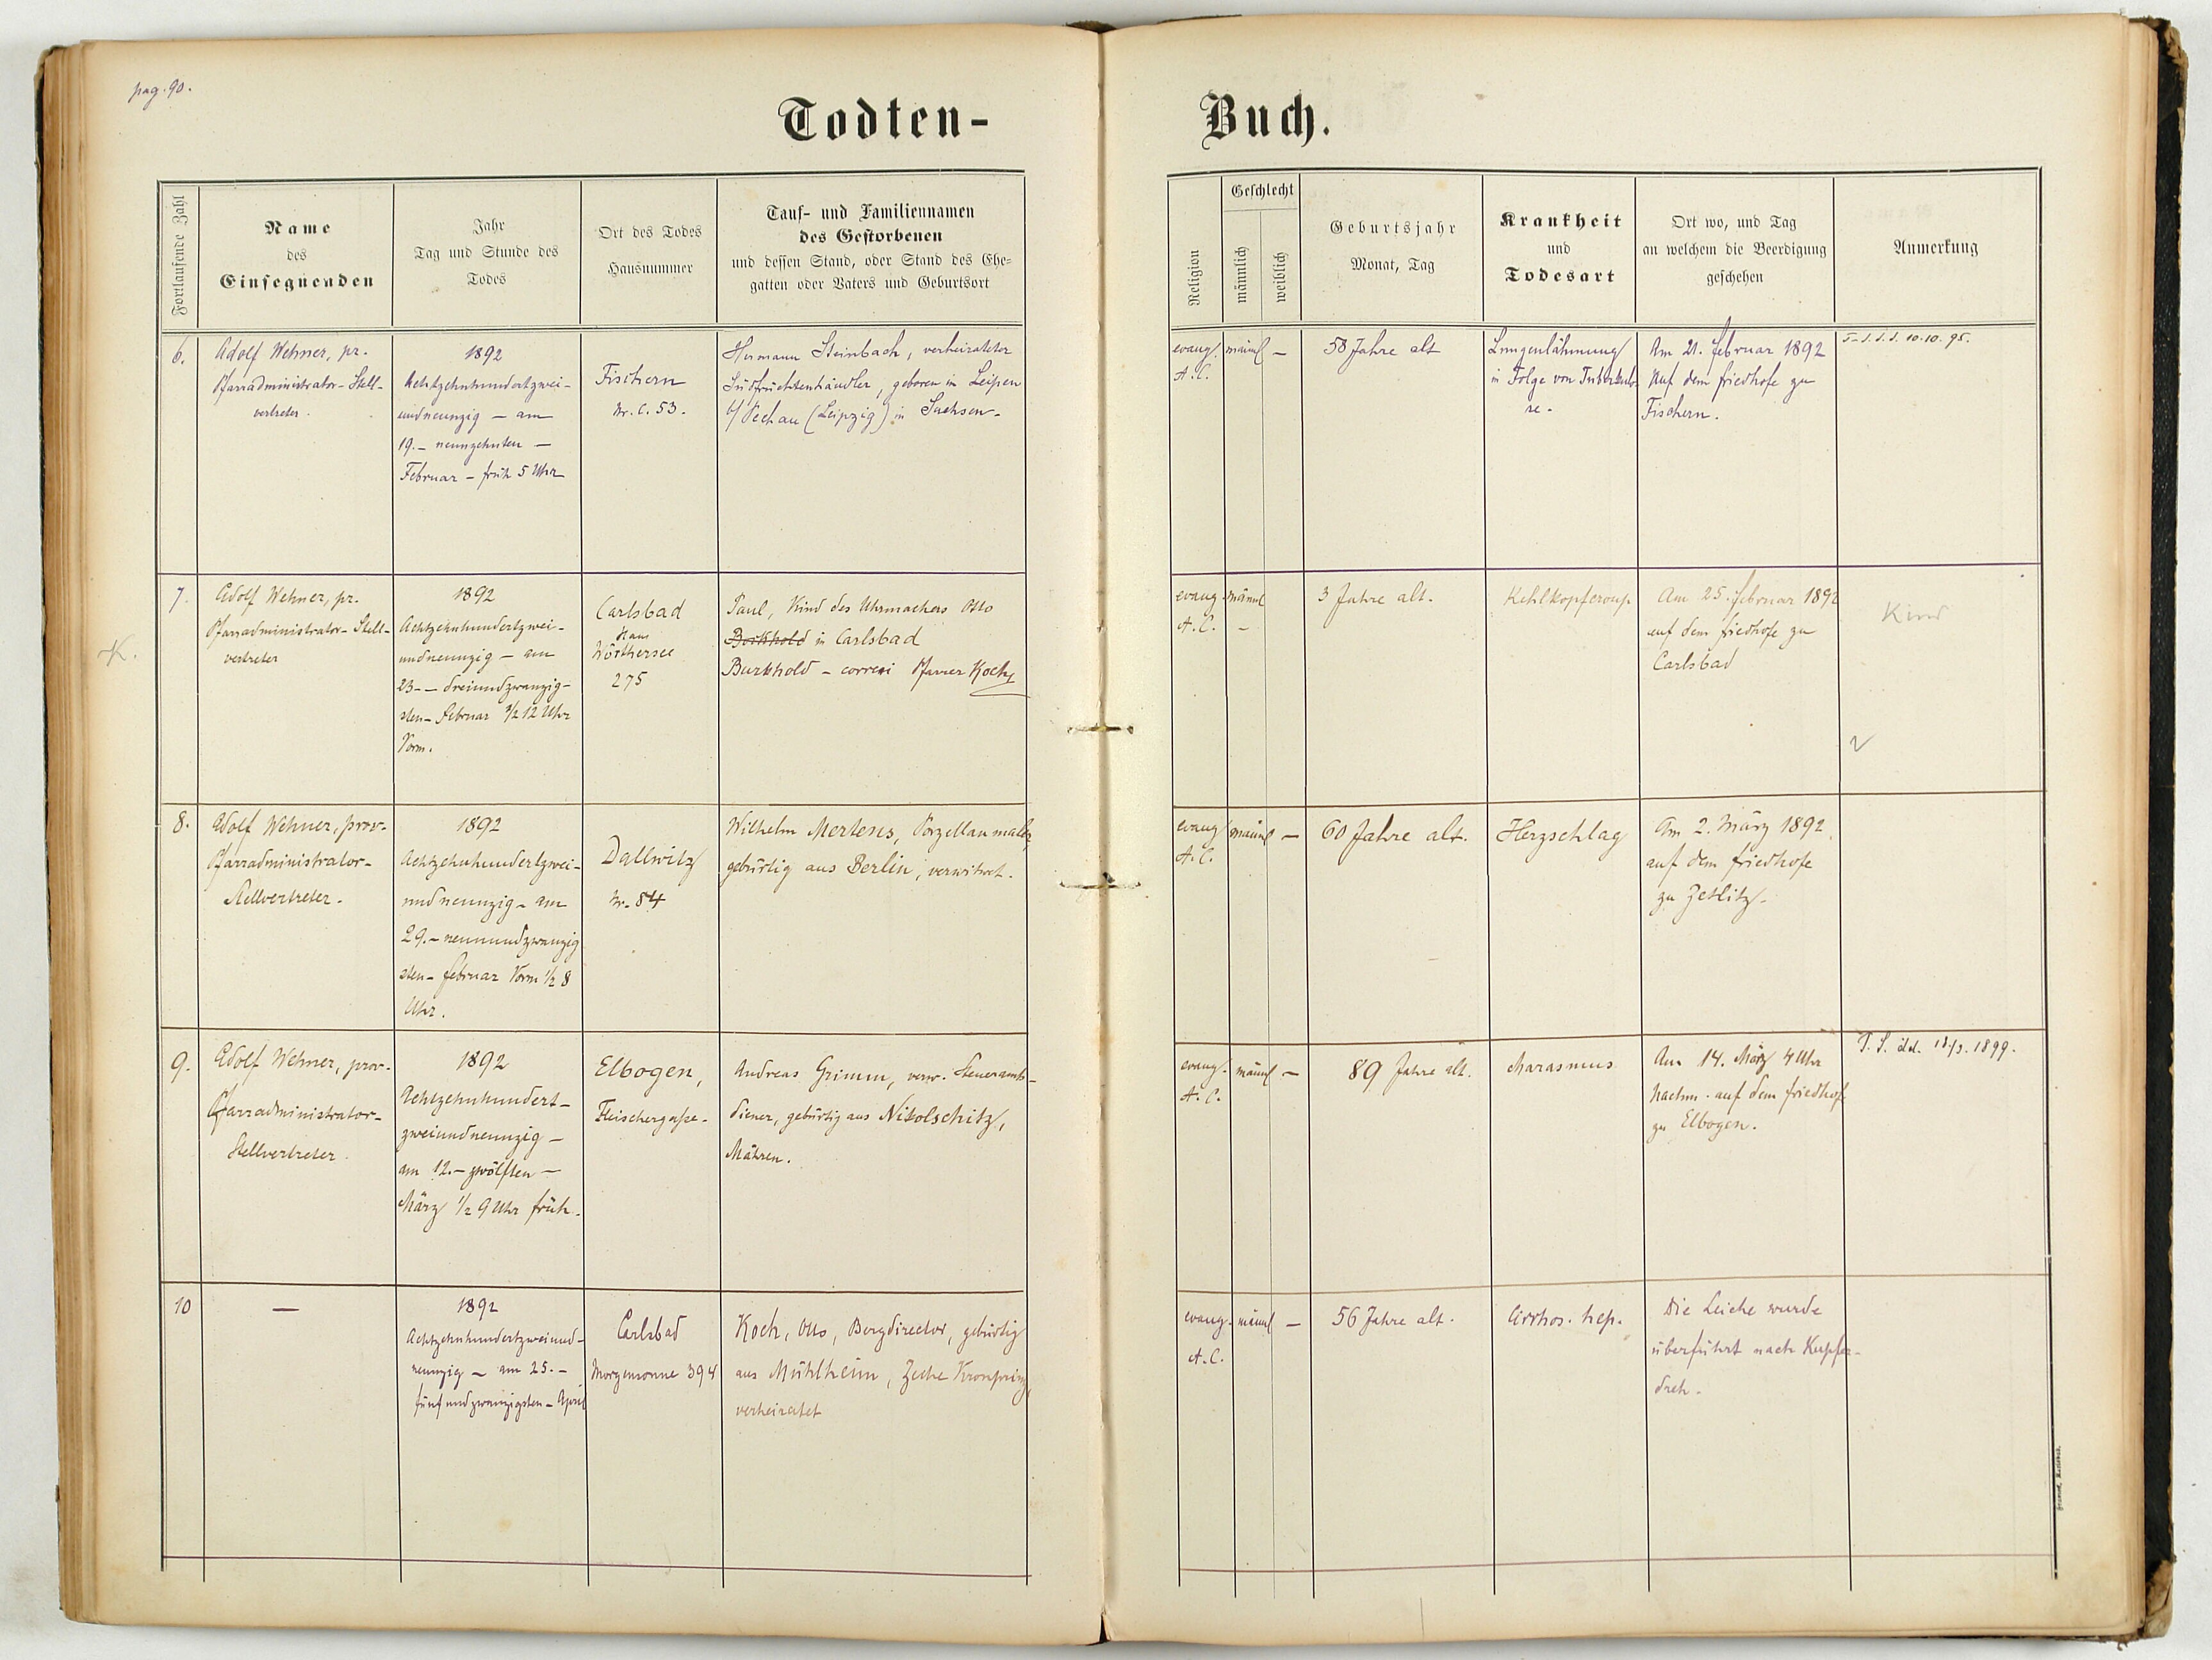 pag. 90.
Todten-
Buch.
Fortlaufende Zahl
Name
des
Einsegnenden
Jahr
Tag und Stunde des
Todes
Ort des Todes
Hausnummer
Tauf- und Familiennamen
des Gestorbenen
und dessen Stand, oder Stand des Ehe-
gatten oder Vaters und Geburtsort
Religion
Geschlecht
männlich
weiblich
Geburtsjahr
Monat, Tag
Krankheit
und
Todesart
Ort wo, und Tag
an welchem die Beerdigung
geschehen
Anmerkung
6.
Adolf Wehner, pr.
Pfarradministrator-Stell-
vertreter.
1892
Achtzehnhundertzwei-
undneunzig – am
19. – neunzehnten –
Februar – früh 5 Uhr
Fischern
Nr. C. 53.
Hermann Steinbach, verheirateter
Südfrüchtenhändler, geboren in Leipen
b/ Pechau (Leipzig) in Sachsen.
evang.
A.C.
männl –
58 Jahre alt
Lungenlähmung
in Folge von Tuberkulo-
se.
Am 21. Februar 1892
auf dem Friedhofe zu
Fischern.
10.10.95.
K.
7.
Adolf Wehner, pr.
Pfarradministrator-Stell-
vertreter
1892
Achtzehnhundertzwei-
undneunzig – am
23. – dreiundzwanzig-
sten – Februar 1/2 12 Uhr
Vorm.
Carlsbad
Haus
Wörthersee
275
Paul, Kind des Uhrmachers Otto
Borkhold in Carlsbad
Burkhold – correxi Pfarrer Koch
evang.
A.C.
männl
–
3 Jahre alt.
Kehlkopfcroup
Am 25. Februar 1892
auf dem Friedhofe zu
Carlsbad
Kind
8.
Adolf Wehner, prov.
Pfarradministrator-
Stellvertreter.
1892
Achtzehnhundertzwei-
undneunzig – am
29. – neunundzwanzig
sten – Februar Vorm 1/2 8
Uhr.
Dallwitz
Nr. 84
Wilhelm Mertens, Porzellanmaler
gebürtig aus Berlin, verwitwet.
evang.
A.C.
männl –
60 Jahre alt.
Herzschlag
Am 2. März 1892
auf dem Friedhofe
zu Zettlitz.
9.
Adolf Wehner, prov.
Pfarradministrator-
Stellvertreter.
1892
Achtzehnhundert-
zweiundneunzig –
am 12. – zwölften –
März 1/2 9 Uhr früh.
Elbogen,
Fleischergasse.
Andreas Grimm, verw. Steueramts-
diener, gebürtig aus Nikolschitz,
Mähren.
evang.
A.C.
männl –
89 Jahre alt.
Marasmus
Am 14. März 4 Uhr
Nachm. auf dem Friedhof
zu Elbogen.
T. S. dd. 18/3. 1899.
10
–
1892
Achtzehnhundertzweiund-
neunzig – am 25. –
fünfundzwanzigsten – April
Carlsbad
Morgensonne 394
Koch, Otto, Bergdirector, gebürtig
aus Mühlheim, Zeche Kronprinz,
verheiratet
evang.
A.C.
männl –
56 Jahre alt.
Cirrhos. hep.
Die Leiche wurde
überführt nach Kupfer-
dreh.